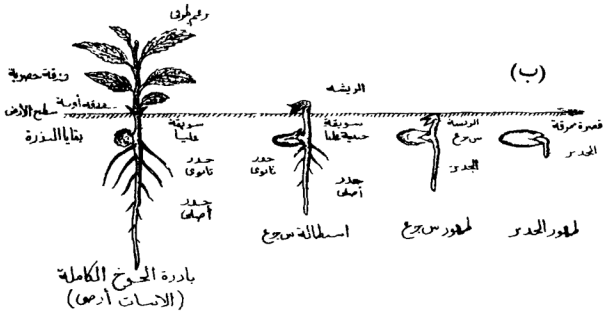 (ب)
برعم طرفى
ورقة خضرية
ورقة أولية
سطح الأرض
بقايا البذرة
سويقة
عليا
جذر
ثانوى
جذر
أصلى
بادرة الخوخ الكاملة
(الانبات أرضى)
الريشه
سويقة
جنينية عليا
جذر
ثانوى
جذر
أصلى
استطالة س ج ع
الريشة
س ج ع
الجذير
ظهور س ج ع
قصرة ممزقة
الجذير
ظهور الجذير